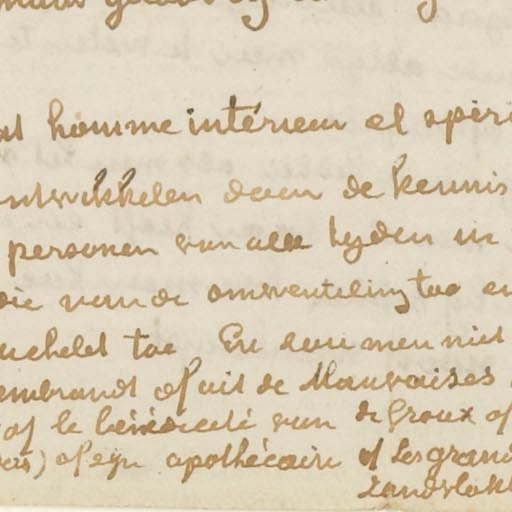 homme intérieur et spiri
ontwikkelen door de kennis
personen van alle tyden in
van de omwenteling toe en
toe En zou men niet
embrandt of uit de Mauvaises
of le bénédicité van de Groux of
of zyn apothécaire of Les grand